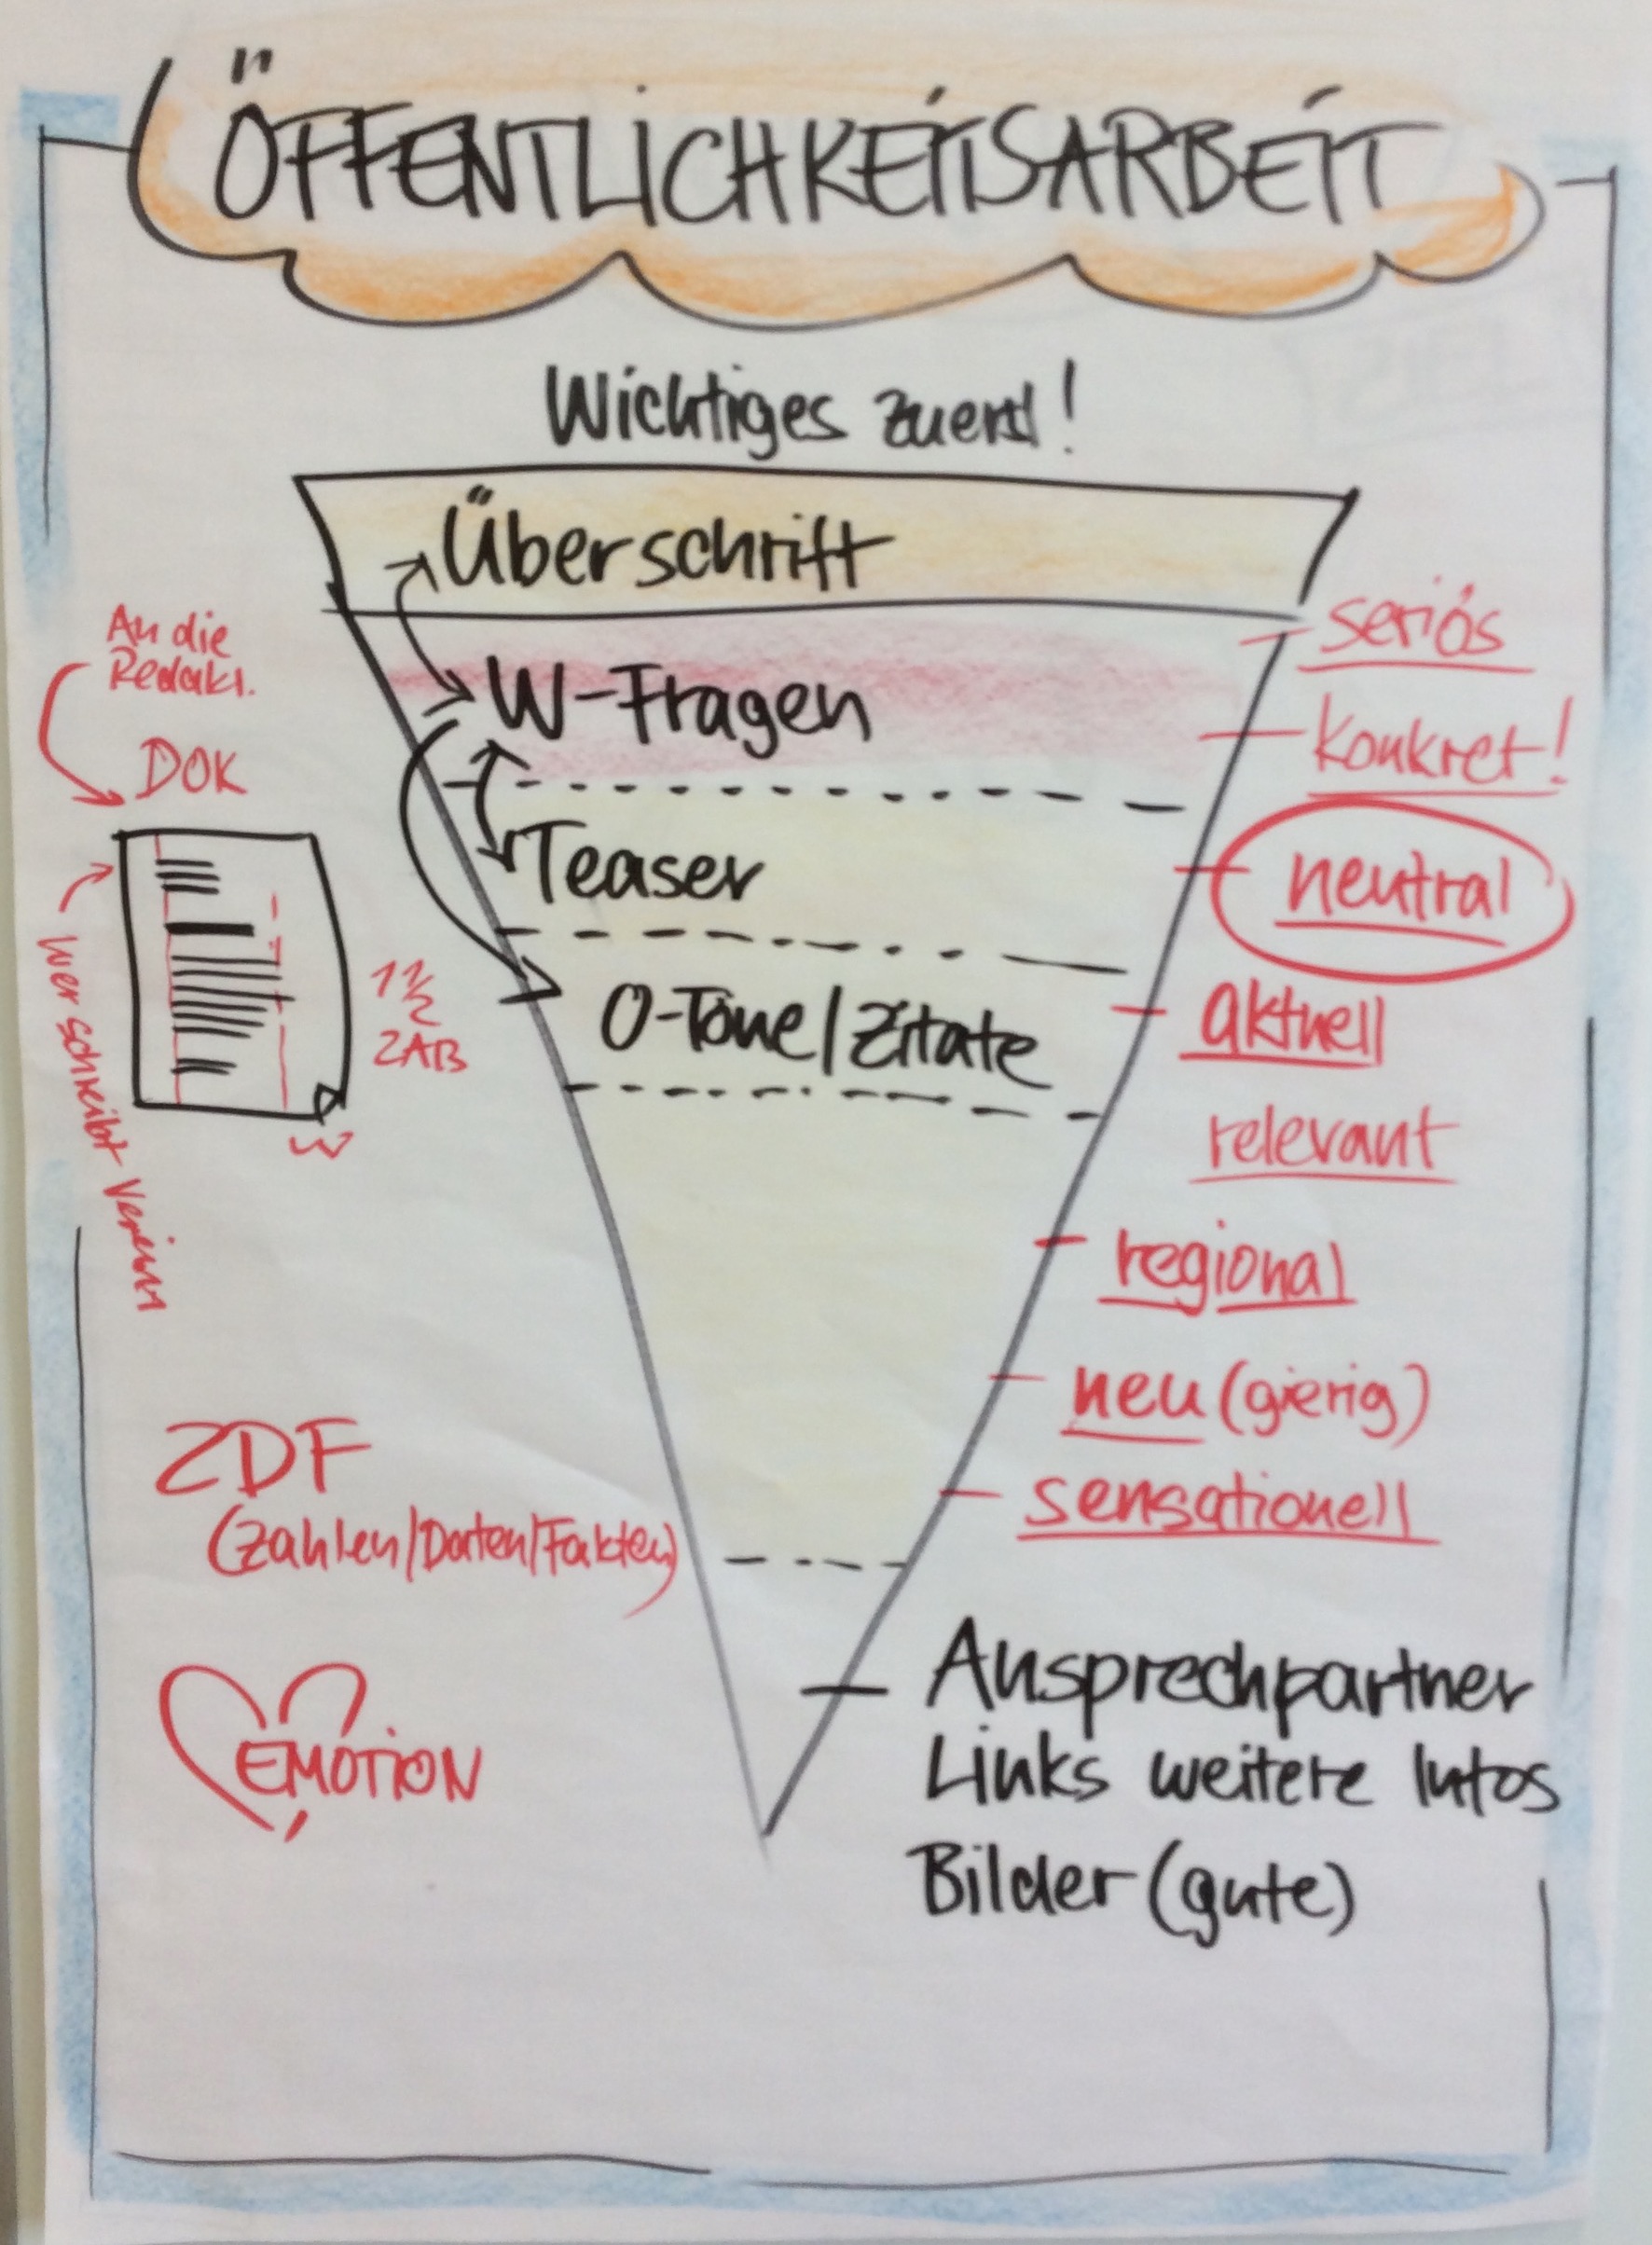 ÖFFENTLICHKEITSARBEIT
Wichtiges zuerst!
Überschrift
W-Fragen
Teaser
O-Töne/Zitate
An die
Redakt.
DOK
wer schreibt Verein
1½
ZAB
ZDF
(Zahlen/Daten/Fakten)
EMOTION
seriös
konkret!
neutral
aktuell
relevant
regional
neu (gierig)
sensationell
Ansprechpartner
Links weitere Infos
Bilder (gute)